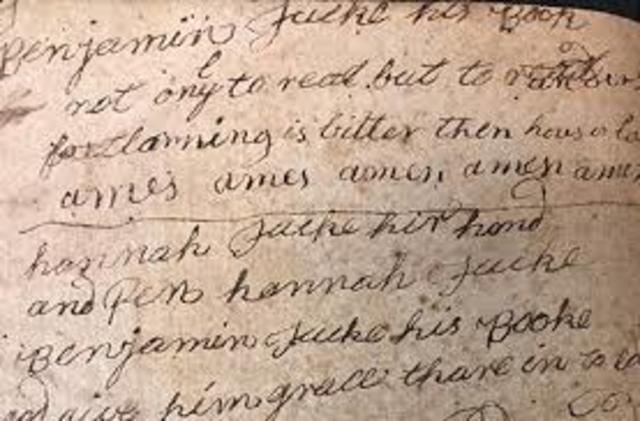 Benjamin Jacke his Book
not only to read but to
for larning is bitter then hous or
ames ames amen amen amen
hannah Jacke hir hand
and Pen hannah Jacke
Benjamin Jacke his Booke
give him grace thare in to